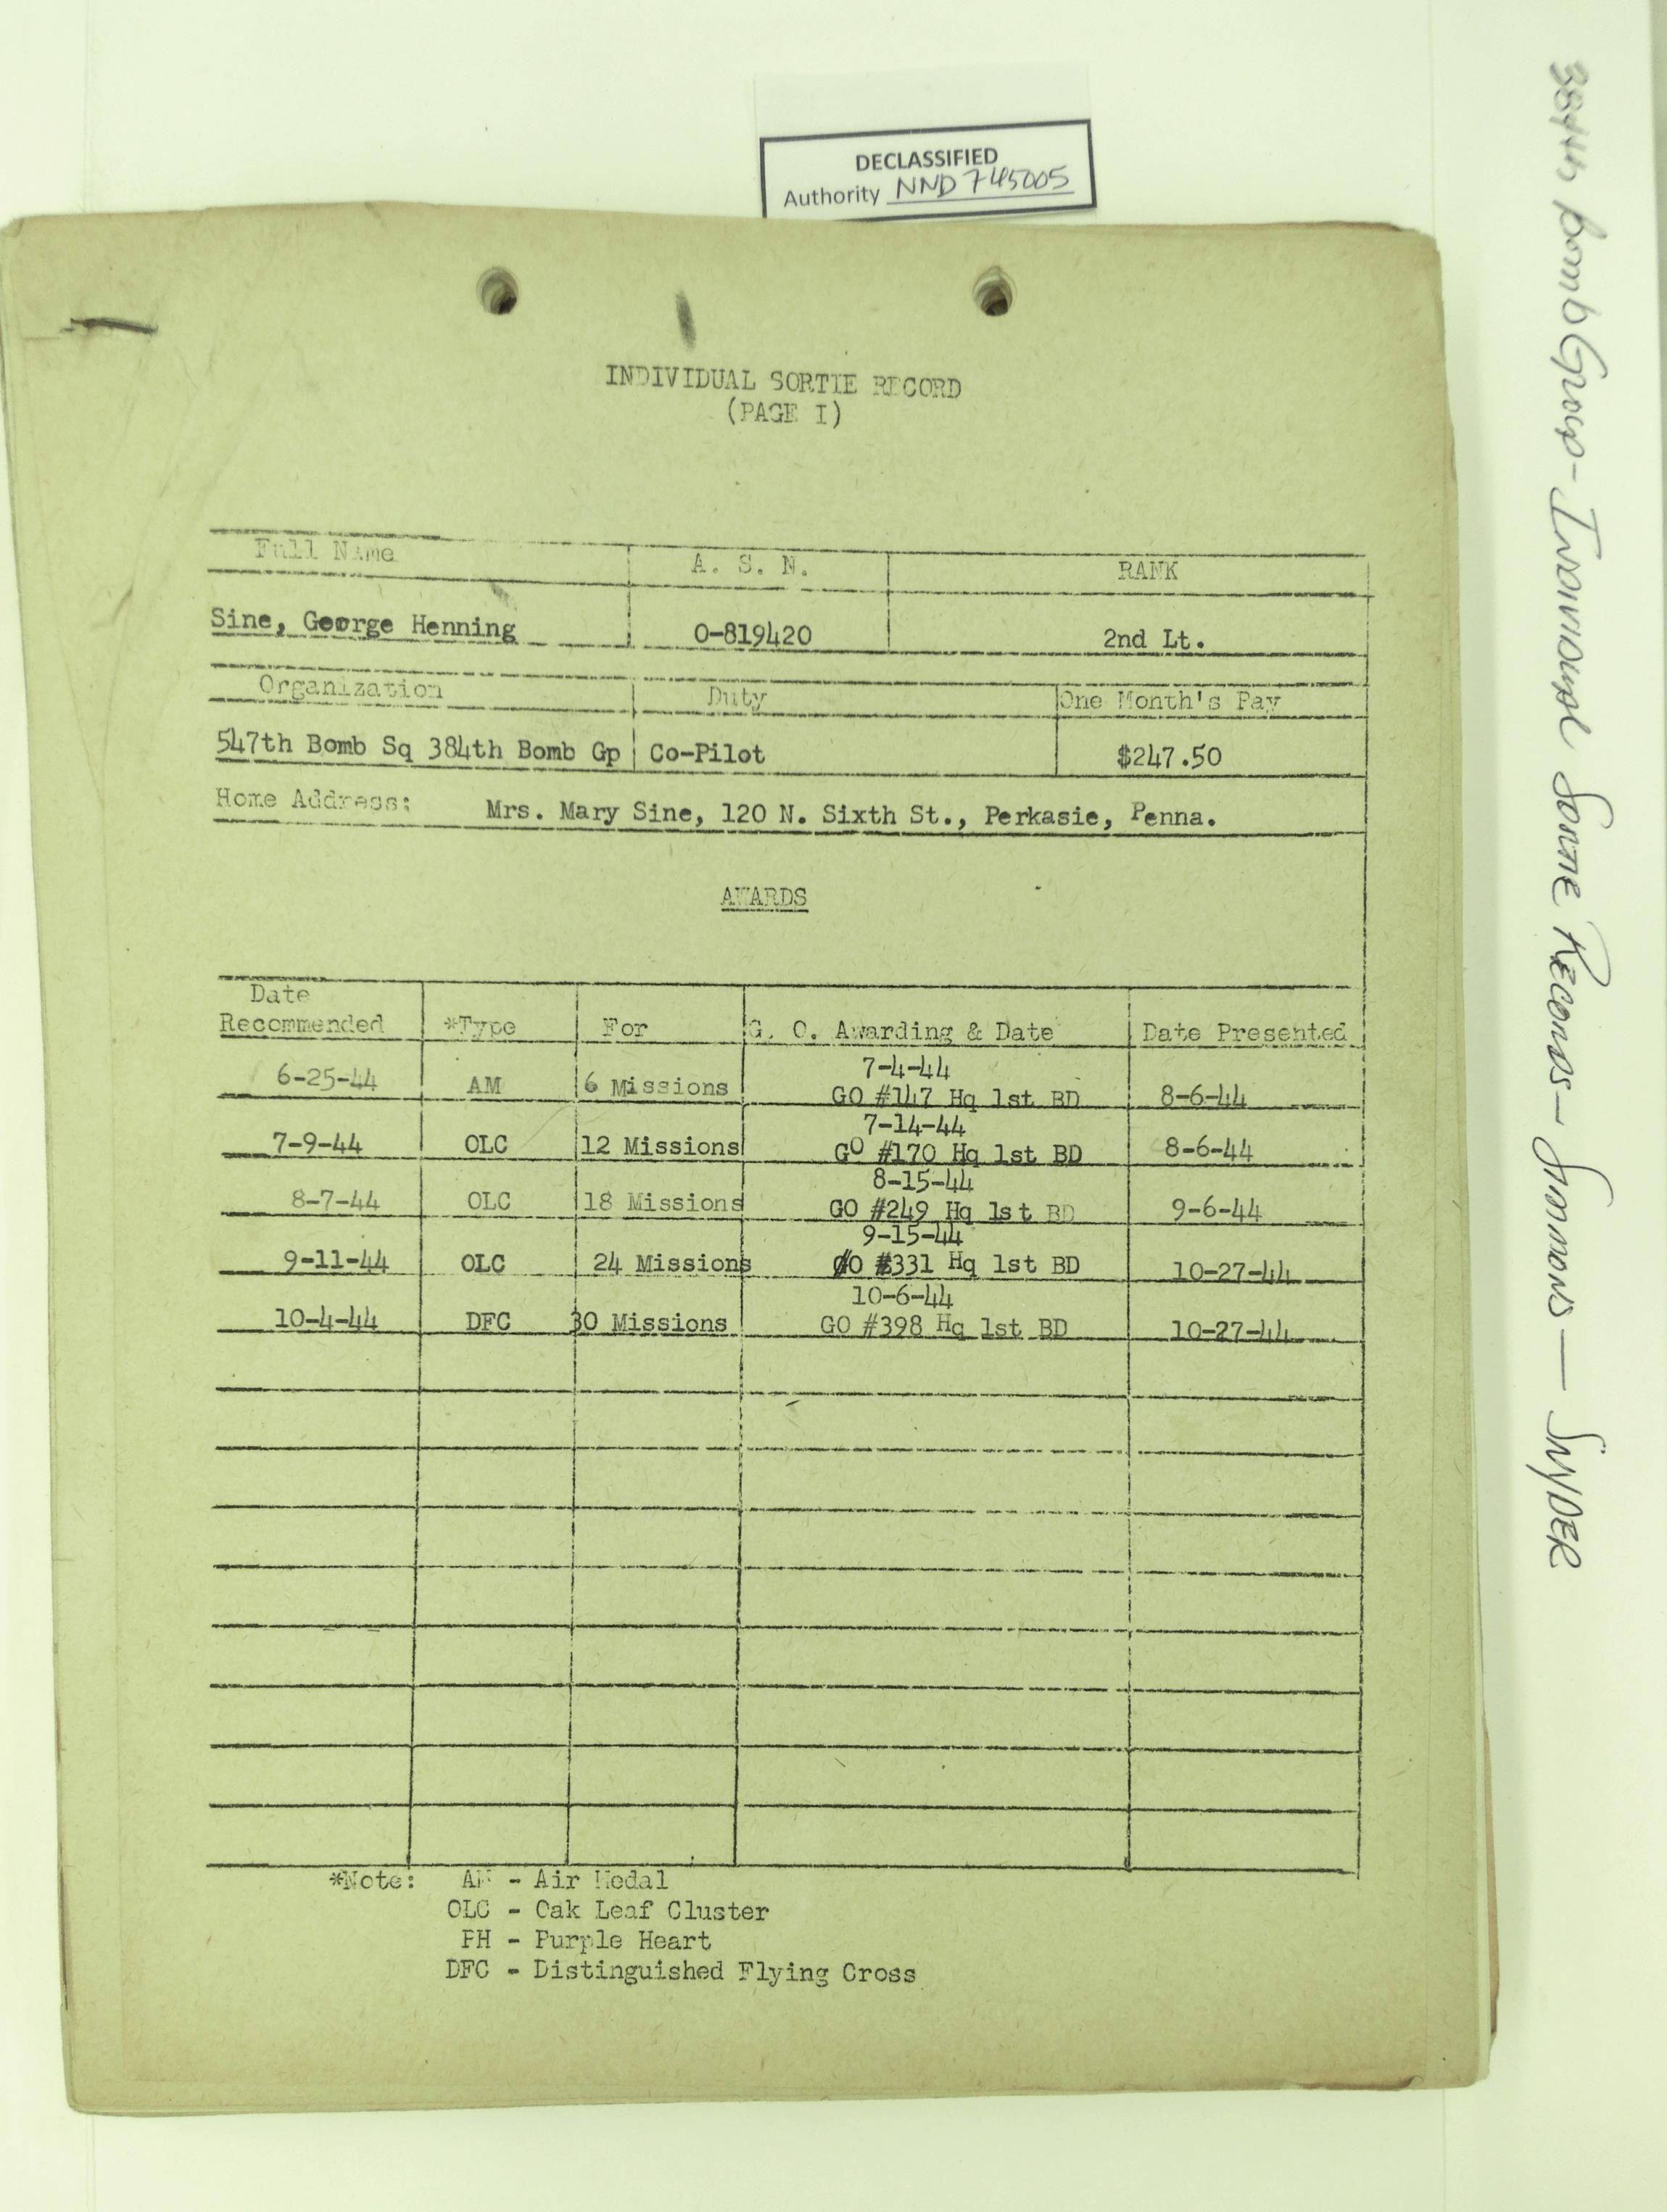 DECLASSIFIED
Authority NND 745005
INDIVIDUAL SORTIE RECORD
(PAGE I)
Full Name A. S. N. RANK
Sine, George Henning 0-819420 2nd Lt.
Organization Duty One Month's Pay
547th Bomb Sq 384th Bomb Gp Co-Pilot $247.50
Home Address: Mrs. Mary Sine, 120 N. Sixth St., Perkasie, Penna.
AWARDS
Date
Recommended *Type For G. O. Awarding & Date Date Presented
7-4-44
6-25-44 AM 6 Missions GO #147 Hq 1st BD 8-6-44
7-14-44
7-9-44 OLC 12 Missions GO #170 Hq 1st BD 8-6-44
8-15-44
8-7-44 OLC 18 Missions GO #249 Hq 1st BD 9-6-44
9-15-44
9-11-44 OLC 24 Missions GO #331 Hq 1st BD 10-27-44
10-6-44
10-4-44 DFC 30 Missions GO #398 Hq 1st BD 10-27-44
*Note: AM - Air Medal
OLC - Oak Leaf Cluster
PH - Purple Heart
DFC - Distinguished Flying Cross
384th Bomb Group - Individual Sortie Records - Simmons - Snyder